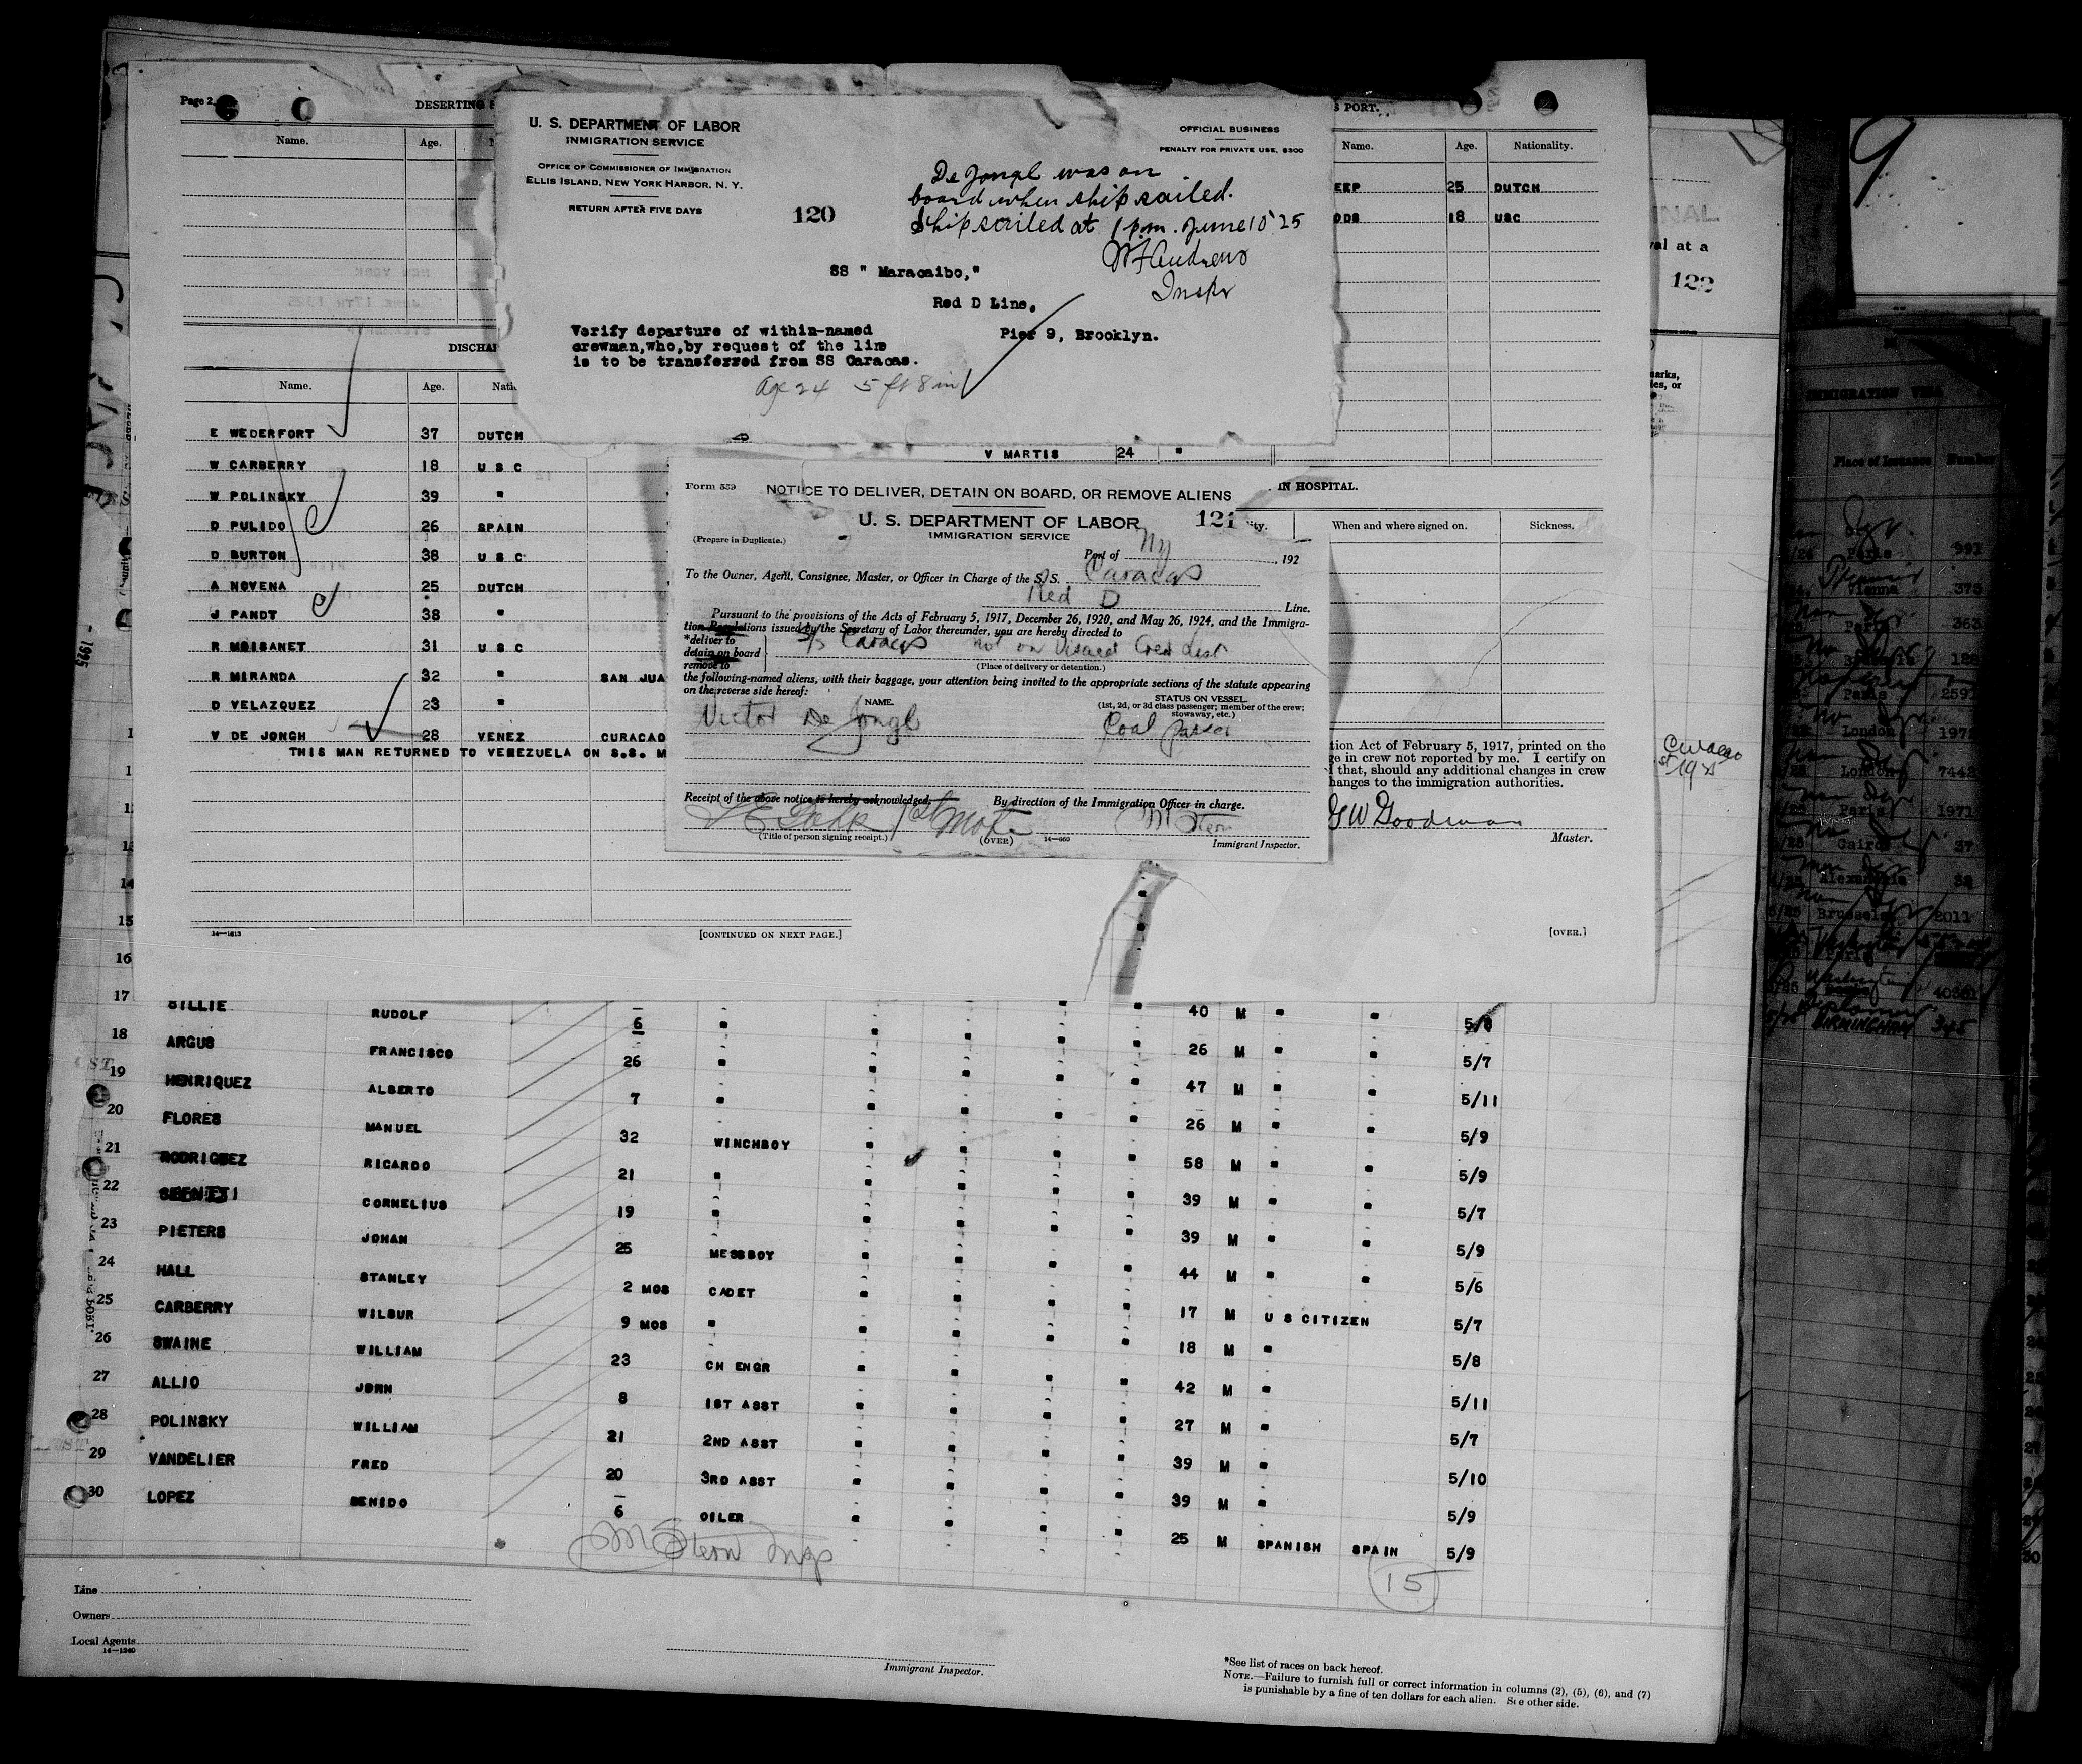 Page 2.
DESERTING
S PORT.
Name. Age.
Name. Age. Nationality.
EEP 25 DUTCH
ODS 18 USC
U. S. DEPARTMENT OF LABOR
IMMIGRATION SERVICE
OFFICE OF COMMISSIONER OF IMMIGRATION
ELLIS ISLAND, NEW YORK HARBOR, N. Y.
RETURN AFTER FIVE DAYS
OFFICIAL BUSINESS
PENALTY FOR PRIVATE USE, $300
120
De Jongh was on
board when ship sailed.
Ship sailed at 1 p.m. June 10 '25
W F Andrews
Inspr
SS " Maracaibo,"
Red D Line,
Pier 9, Brooklyn.
Verify departure of within-named
crewman,who,by request of the line
is to be transferred from SS Caracas.
Age 24 5 ft 8 in
DISCHA
Name. Age. Nati
E WEDERFORT 37 DUTCH
W CARBERRY 18 U S C
W POLINSKY 39 "
D PULIDO 26 SPAIN
D BURTON 38 U S C
A NOVENA 25 DUTCH
J PANDT 38 "
R MOISANET 31 U S C
R MIRANDA 32 " SAN JUA
D VELAZQUEZ 23 "
V DE JONGH 28 VENEZ CURACAO
THIS MAN RETURNED TO VENEZUELA ON S.S. M
14—1613
[CONTINUED ON NEXT PAGE.]
V MARTIS 24 "
Form 559
NOTICE TO DELIVER, DETAIN ON BOARD, OR REMOVE ALIENS
U. S. DEPARTMENT OF LABOR
IMMIGRATION SERVICE
121
(Prepare in Duplicate.)
Port of NY , 192
To the Owner, Agent, Consignee, Master, or Officer in Charge of the S. S. Caracas
Red D Line.
Pursuant to the provisions of the Acts of February 5, 1917, December 26, 1920, and May 26, 1924, and the Immigra-
tion Regulations issued by the Secretary of Labor thereunder, you are hereby directed to
*deliver to
detain on board
remove to
S/S Caracas not on Visaed Crew List
(Place of delivery or detention.)
the following-named aliens, with their baggage, your attention being invited to the appropriate sections of the statute appearing
on the reverse side hereof:
NAME.
STATUS ON VESSEL.
(1st, 2d, or 3d class passenger; member of the crew;
stowaway, etc.)
Victor De Jongh Coal passer
Receipt of the above notice is hereby acknowledged.
By direction of the Immigration Officer in charge.
M Stern
(Title of person signing receipt.)
(OVER)
14—665
Immigrant Inspector.
IN HOSPITAL.
ity. When and where signed on. Sickness.
tion Act of February 5, 1917, printed on the
ge in crew not reported by me. I certify on
that, should any additional changes in crew
hanges to the immigration authorities.
G W Goodman
Master.
[OVER.]
NAL
val at a
122
arks,
es, or
Curacao
9
1925
IMMIGRATION VISA
Place of Issuance Number
Paris 991
Vienna 375
Paris 363
Paris 2597
London 1972
London 7442
Paris 1971
Cairo 37
Alexandria 32
Brussels 2011
BIRMINGHAM 345
14
15
16
17 SILLIE RUDOLF 6 " 40 M " " 5/8
18 ARGUS FRANCISCO 26 " 26 M " " 5/7
19 HENRIQUEZ ALBERTO 7 " 47 M " " 5/11
20 FLORES MANUEL 32 WINCHBOY 26 M " " 5/9
21 RODRIGUEZ RICARDO 21 " 58 M " " 5/9
22 CORNELIUS 19 " 39 M " " 5/7
23 PIETERS JOHAN 25 MESSBOY 39 M " " 5/9
24 HALL STANLEY 2 MOS CADET 44 M " " 5/6
25 CARBERRY WILBUR 9 MOS " 17 M U S CITIZEN 5/7
26 SWAINE WILLIAM 23 CH ENGR 18 M " 5/8
27 ALLIO JOHN 8 1ST ASST 42 M " 5/11
28 POLINSKY WILLIAM 21 2ND ASST 27 M " 5/7
29 VANDELIER FRED 20 3RD ASST 39 M " 5/10
30 LOPEZ BENIDO 6 OILER 39 M " 5/9
25 M SPANISH SPAIN 5/9
M Stern Insp
15
Line
Owners
Local Agents
14—1240
Immigrant Inspector.
*See list of races on back hereof.
NOTE.—Failure to furnish full or correct information in columns (2), (5), (6), and (7)
is punishable by a fine of ten dollars for each alien. See other side.